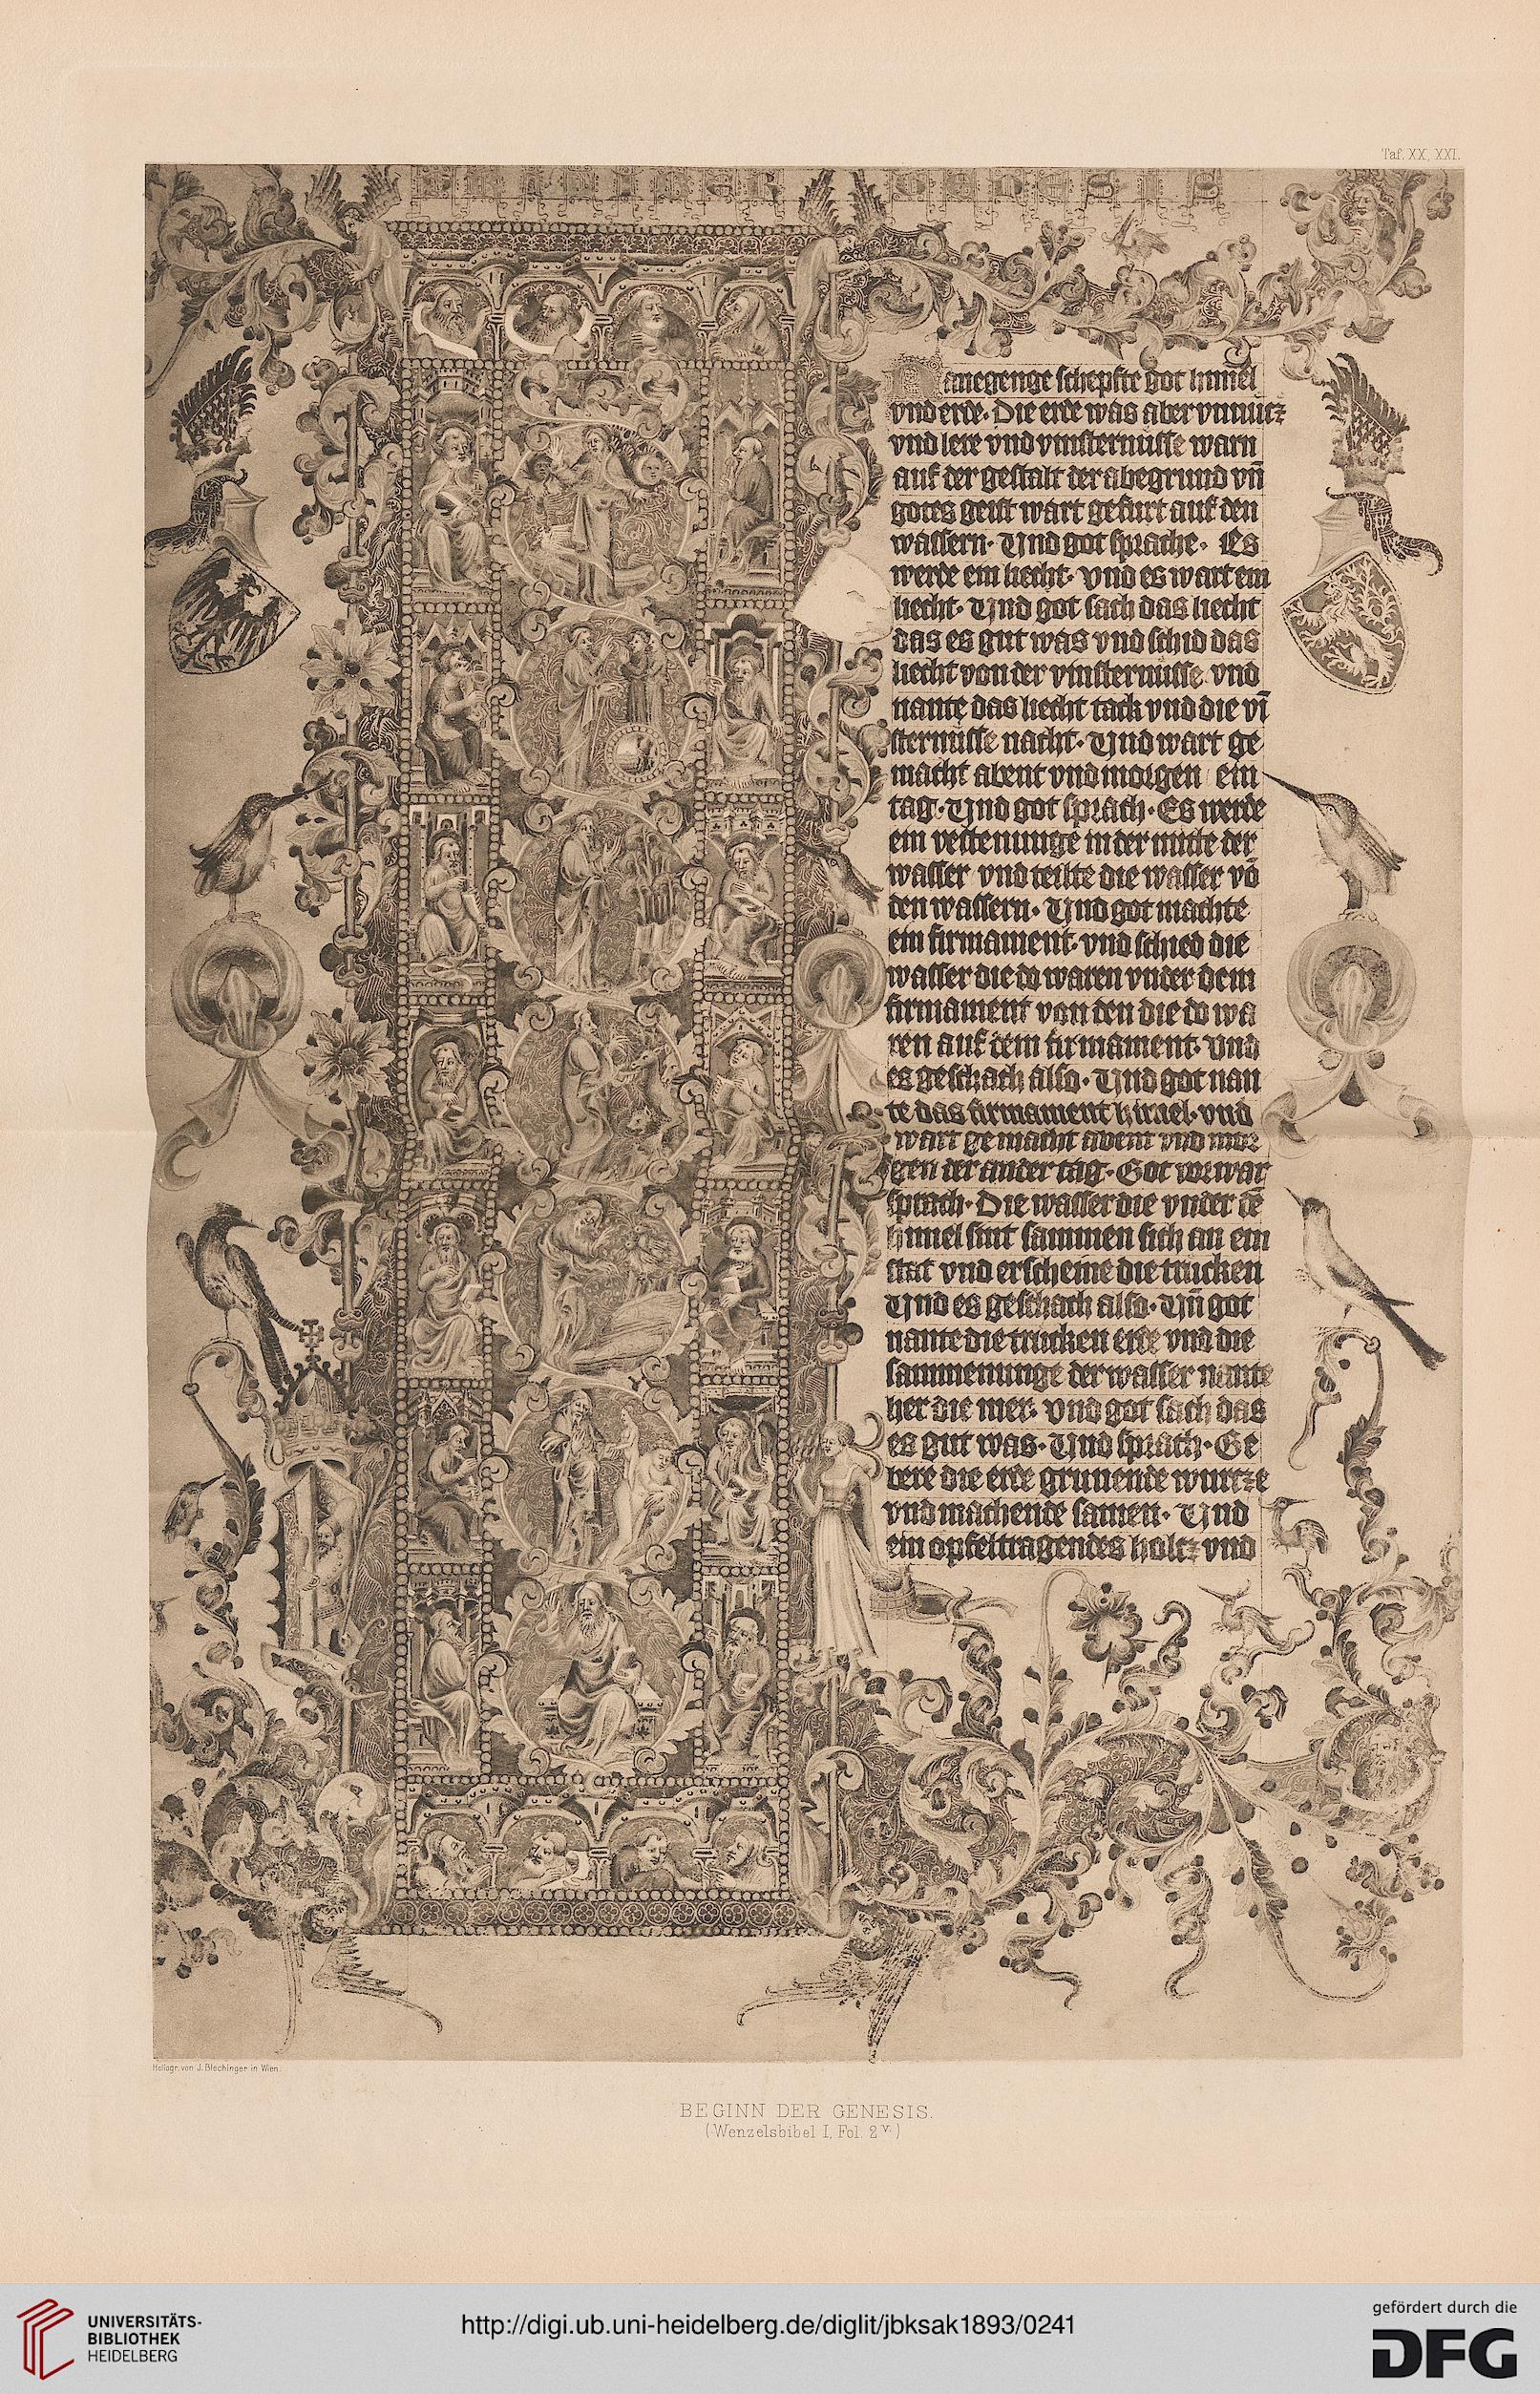 Taf. XX, XXI.
anegenge schepfte got himel
vnd erde. Die erde was aber vnnucz
vnd lere vnd vinsternusse warn
auf der gestalt der abegrund vn̄
gotes geist wart gefurt auf den
wassern. Vnd got sprache. Es
werde ein liecht. vnd es wart ein
liecht. Vnd got sach das liecht
das es gut was vnd schid das
liecht von der vinsternusse. vnd
nante das liecht tack vnd die vī
sternusse nacht. Vnd wart ge
macht abent vnd morgen ein
tag. Vnd got sprach. Es werde
ein vestenunge in der mitte der
wasser vnd teilte die wasser vō
den wassern. Vnd got machte
ein firmament. vnd schied die
wasser die do waren vnder dem
firmament von den die do wa
ren auf dem firmament. vnd
es geschach also. Vnd got nan
te das firmament himel. vnd
wart gemacht abent vnd mor
gen der ander tag. Got vorwar
sprach. Die wasser die vnder dē
himel sint sammen sich an ein
stat vnd erscheine die trucken
Vnd es geschach also. Vn̄ got
nante die trucken erde vnd die
sammenunge der wasser nante
her die mer. vnd got sach das
es gut was. Vnd sprach. Ge
bere die erde grunende wurtze
vnd machende samen. Vnd
ein opfeltragendes holtz vnd
Heliogr. von J. Blechinger in Wien.
BEGINN DER GENESIS.
(Wenzelsbibel I, Fol. 2 v.)
UNIVERSITÄTS-
BIBLIOTHEK
HEIDELBERG
http://digi.ub.uni-heidelberg.de/diglit/jbksak1893/0241
gefördert durch die
DFG